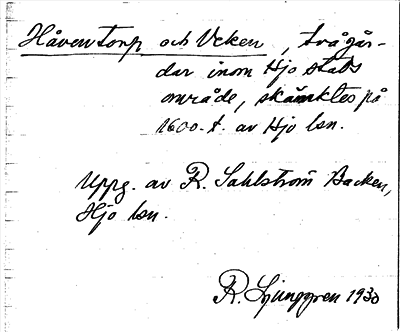 Håventorp och Veken, två går-
dar inom Hjo stads
område, skänktes på
1600-t. av Hjo lsn.
Uppg. av R. Sahlström Backen,
Hjo lsn.
R. Ljunggren 1930